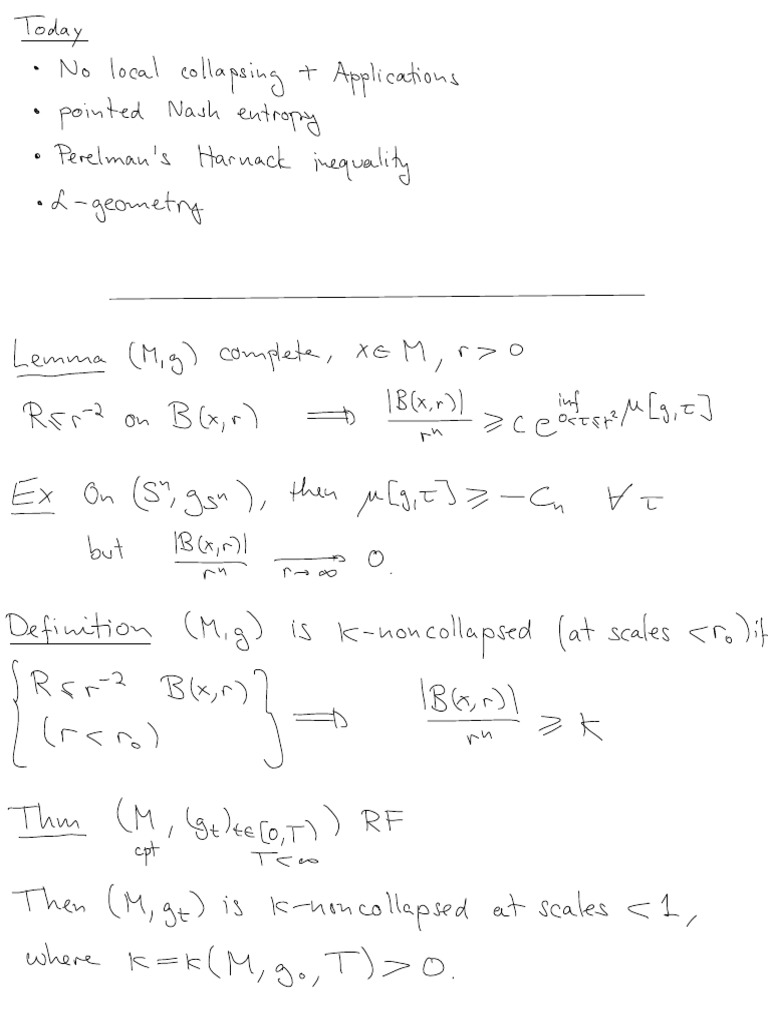 Today
• No local collapsing + Applications
• pointed Nash entropy
• Perelman's Harnack inequality
• ℒ-geometry
Lemma (M,g) complete, x∈M, r>0
R≤r⁻² on B(x,r) ⟹ |B(x,r)|/rⁿ ≥ c e^{inf_{0<τ≤r²} μ[g,τ]}
Ex On (Sⁿ, g_{Sⁿ}), then μ[g,τ] ≥ -Cₙ ∀ τ
but |B(x,r)|/rⁿ →_{r→∞} 0.
Definition (M,g) is κ-noncollapsed (at scales <r₀) if
{R≤r⁻² B(x,r) (r<r₀)} ⟹ |B(x,r)|/rⁿ ≥ κ
Thm (M, (g_t)_{t∈[0,T)}) RF
cpt T<∞
Then (M,g_t) is κ-noncollapsed at scales <1,
where κ=κ(M,g₀,T)>0.